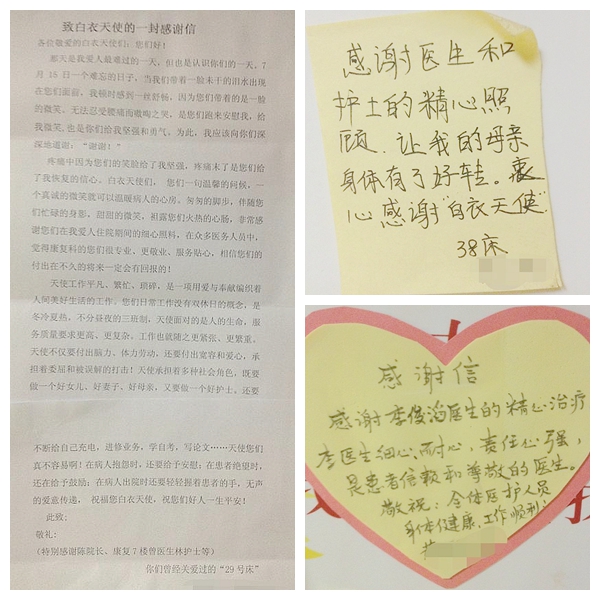 致白衣天使的一封感谢信
各位敬爱的白衣天使们：您们好！
那天是我爱人最难过的一天，但也是认识你们的一天，7
月 16 日一个难忘的日子，当我们带着一脸未干的泪水出现
在您们面前，我顿时感到一丝舒畅，因为您们带着的是一脸
的微笑。无法忍受腰痛而嗷嗷之哭，是您们跑来安慰我，给
我微笑，也是你们给我坚强和勇气。为此，我应该向你们深
深地道谢：“谢谢！”
疼痛中因为您们的笑脸给了我坚强，疼痛末了是您们给
了我恢复的信心。白衣天使们， 您们一句温馨的问候，一
个真诚的微笑就可以温暖病人的心房。匆匆的脚步，伴随您
们忙碌的身影，甜甜的微笑，袒露您们火热的心肠，非常感
谢您们在我爱人住院期间的细心照料，在众多医务人员中，
觉得康复科的您们很专业、更敬业、服务贴心，相信您们的
付出在不久的将来一定会有回报的！
天使工作平凡、繁忙、琐碎，是一项用爱与奉献编织着
人间美好生活的工作。您们日常工作没有双休日的概念，是
冬冷夏热，不分昼夜的三班制，天使面对的是人的生命，服
务质量要求更高、更复杂，工作也就随之更紧张、更繁重。
天使不仅要付出脑力、体力劳动，还要付出宽容和爱心，承
担着委屈和被误解的打击！天使承担着多种社会角色，既要
做一个好女儿、好妻子、好母亲，又要做一个好护士，还要
不断给自己充电，进修业务，学自考，写论文……天使您们
真不容易啊！在病人抱怨时，还要给予安慰；在患者绝望时，
还在给予鼓励；在病人出院时还要轻轻握着患者的手，无声
的爱意传递， 祝福您白衣天使，祝您们好人一生平安！
此致：
敬礼：
(特别感谢陈院长、康复 7 楼曾医生林护士等)
你们曾经关爱过的“29 号床”
感谢医生和
护士的精心照
顾，让我的母亲
身体有了好转。衷
心感谢“白衣天使”
38床
感谢信
感谢李俊滔医生的精心治疗
李医生细心、耐心，责任心强，
是患者信赖和尊敬的医生。
敬祝：全体医护人员
身体健康、工作顺利！